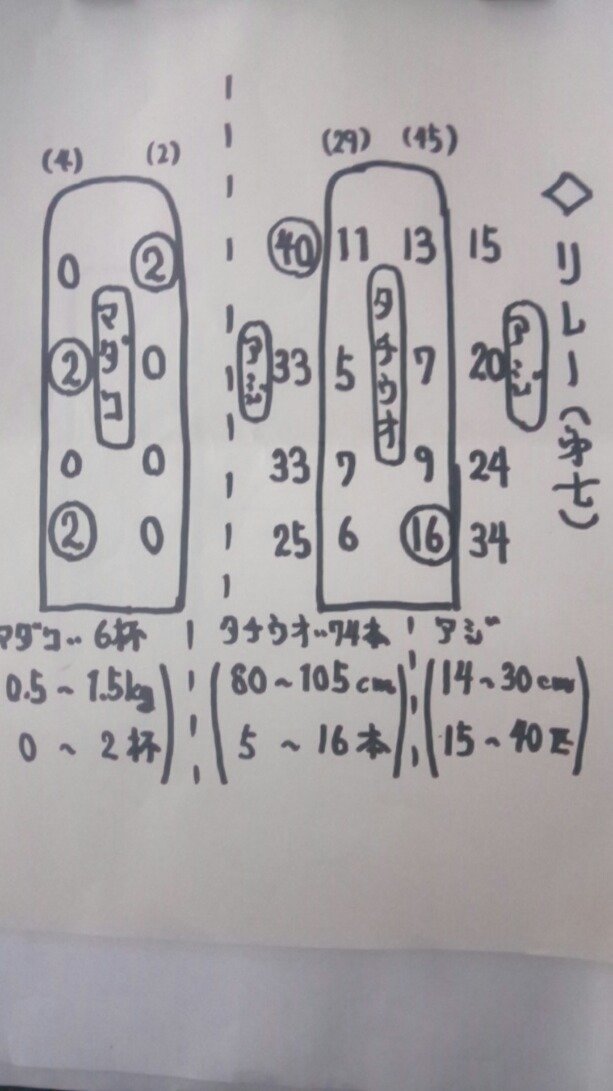 ◇リレー(第七)
(29) (45)
㊵ 11 13 15
アジ
タチウオ
アジ
33 5 7 20
33 7 9 24
25 6 ⑯ 34
(4) (2)
0 ②
マダコ
② 0
0 0
② 0
マダコ‥6杯
0.5~1.5kg
0~2杯
タチウオ‥74本
80~105cm
5~16本
アジ
14~30cm
15~40匹